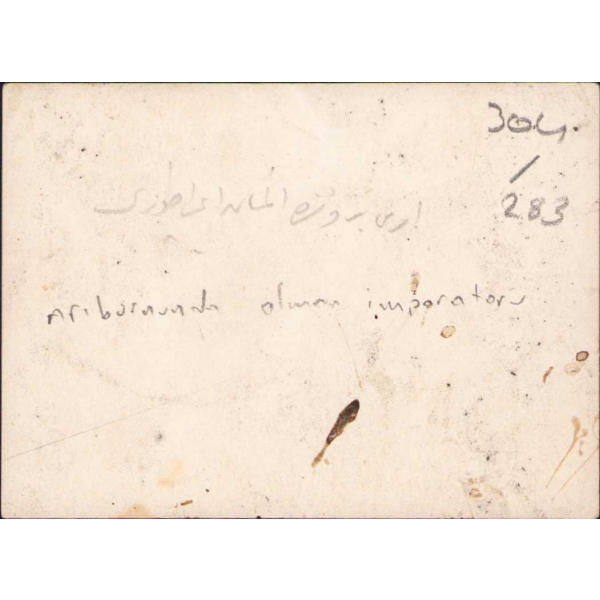 304.
/
283
اری بروننده المان ایمپراطوری
Arıburnunda alman imparatoru